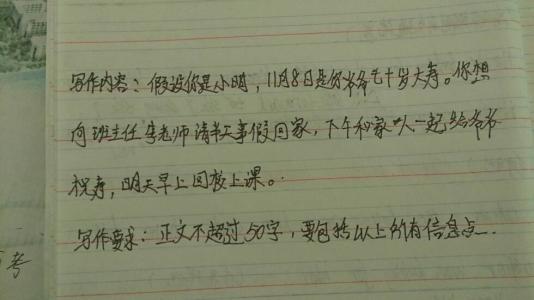 写作内容：假设你是小明，11月8日是你爷爷七十岁大寿。你想
向班主任李老师请半天事假回家，下午和家人一起给爷爷
祝寿，明天早上回校上课。
写作要求：正文不超过50字，要包括以上所有信息点
考